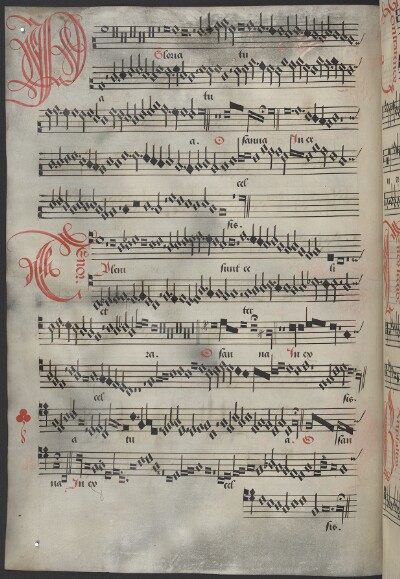 Gloria tu
a tu
a. O sanna In ex
cel
sis.
Tenor.
Pleni sunt ce li
et ter
ra. O san na In ex
cel sis.
a tu a. O san
na In ex cel
sis.